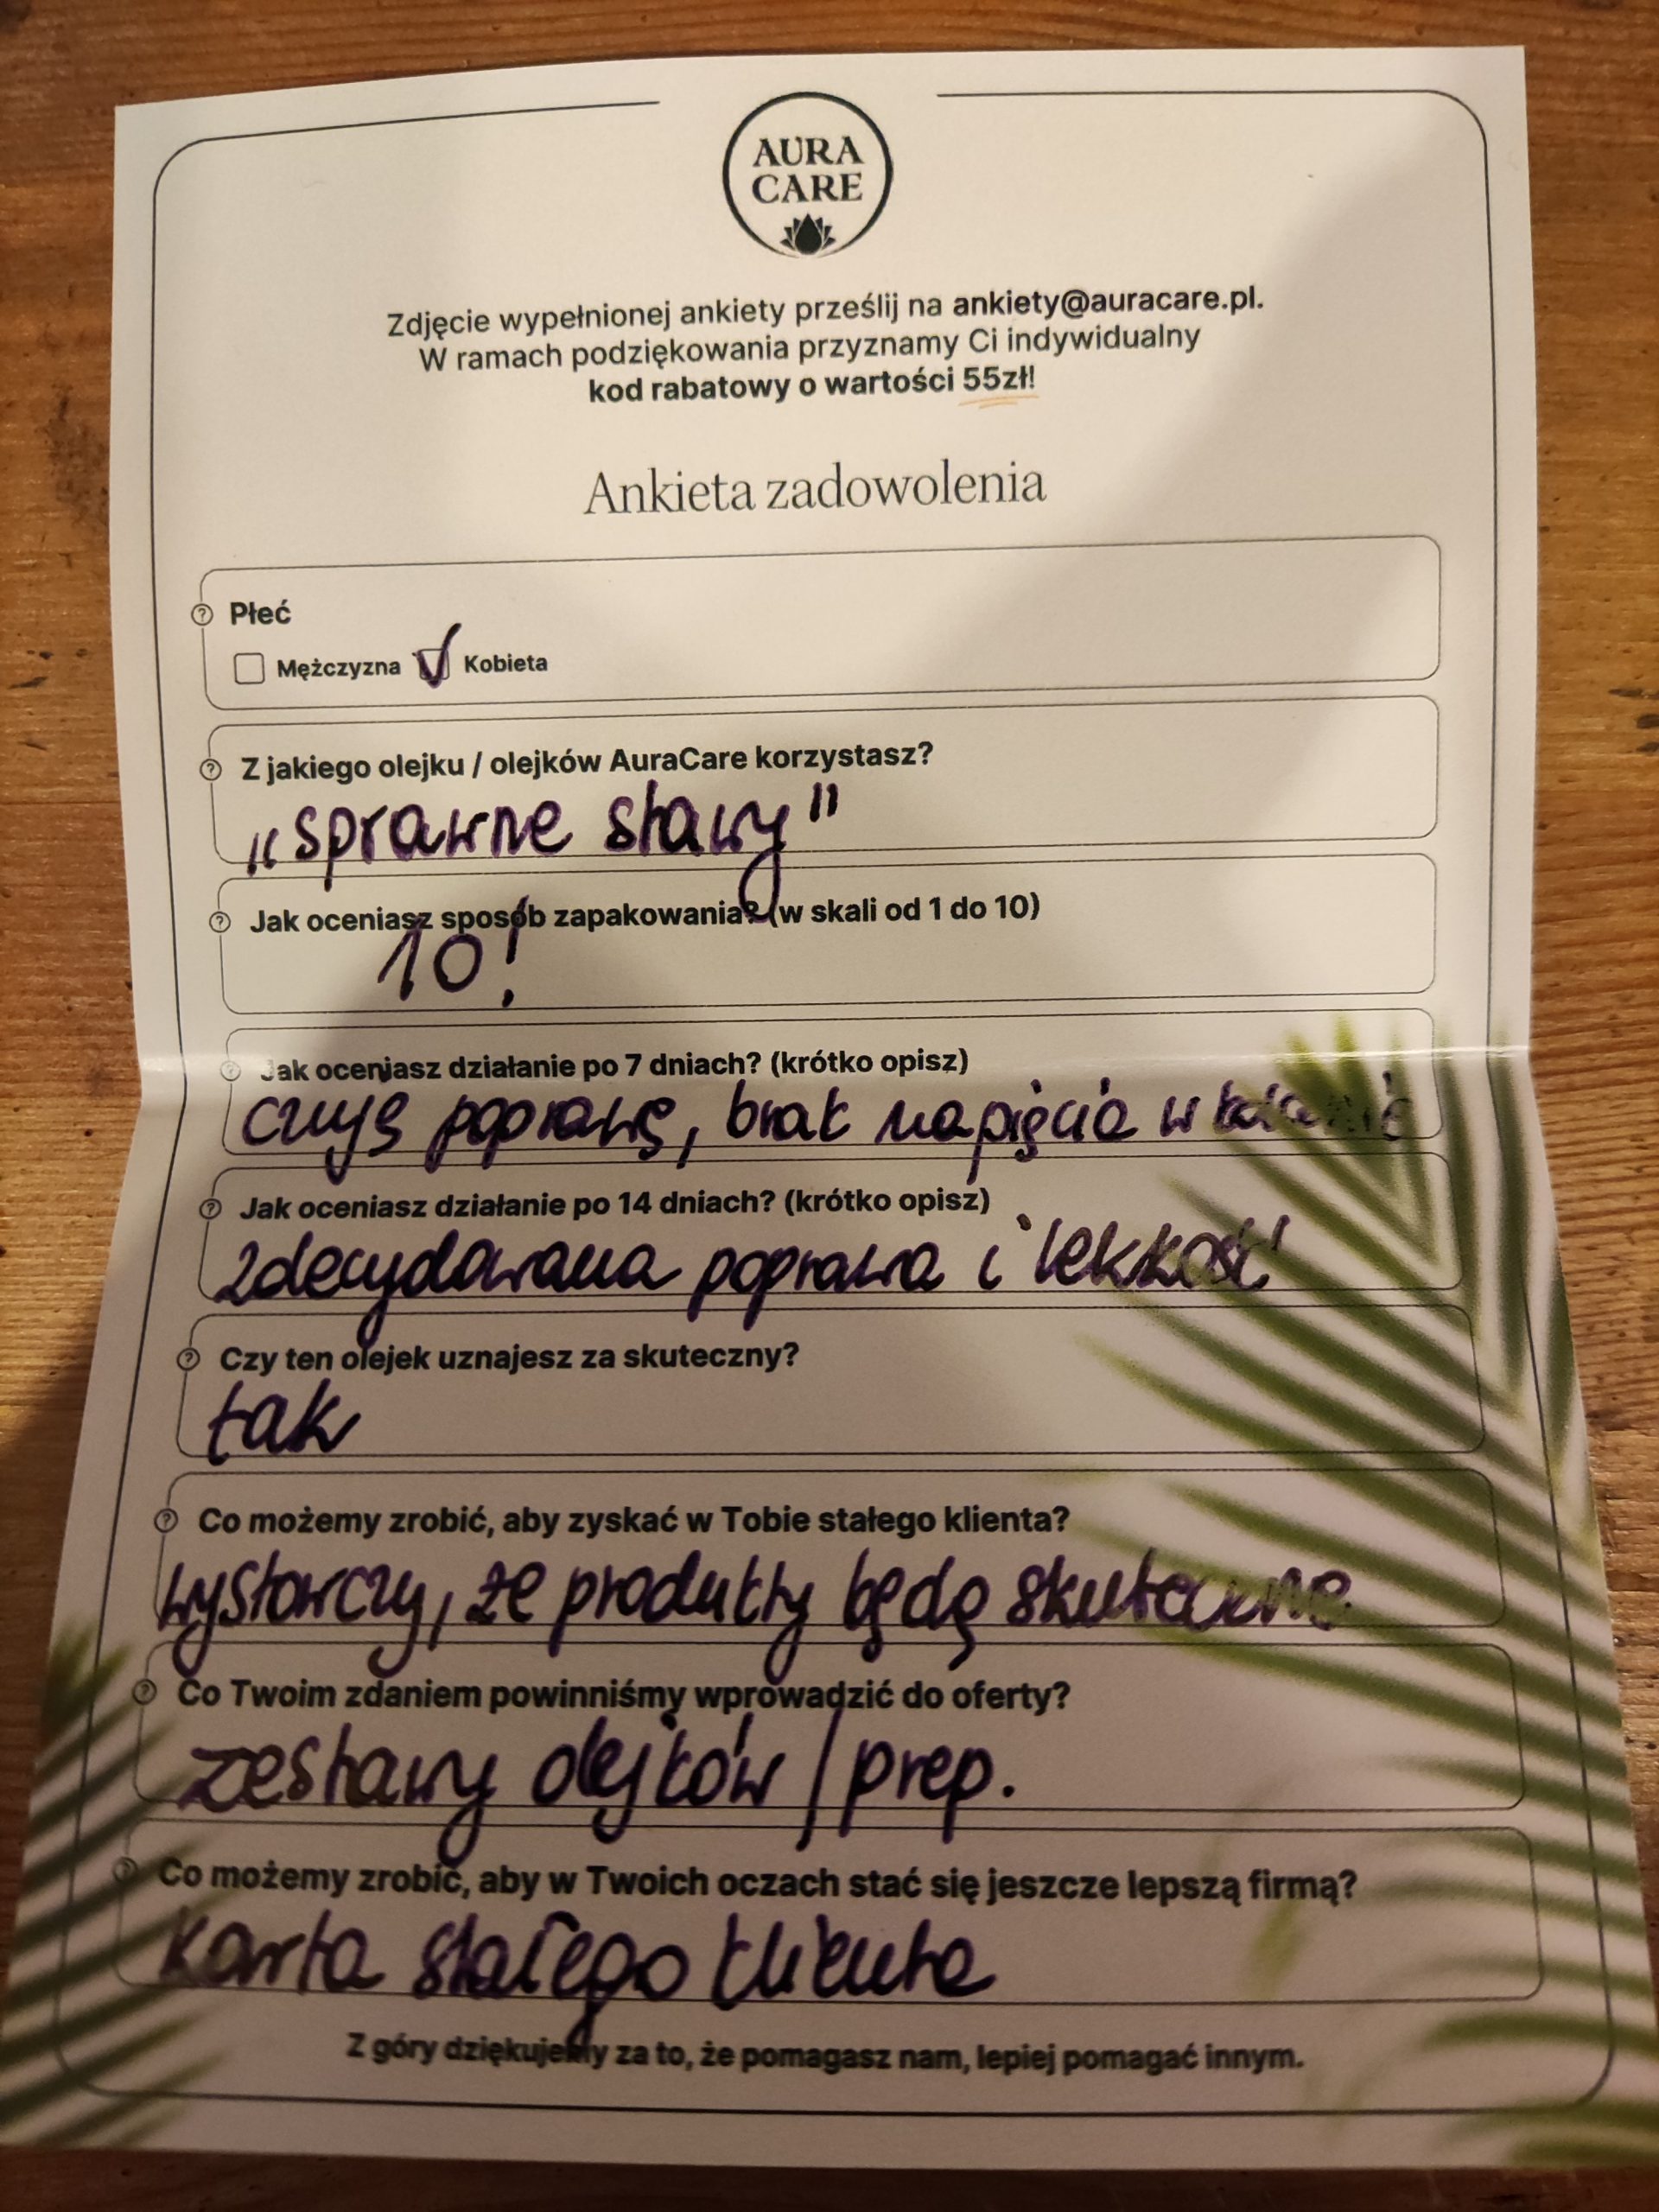 AURA
CARE
Zdjęcie wypełnionej ankiety prześlij na ankiety@auracare.pl.
W ramach podziękowania przyznamy Ci indywidualny
kod rabatowy o wartości 55zł!
Ankieta zadowolenia
Płeć
Mężczyzna Kobieta
Z jakiego olejku / olejków AuraCare korzystasz?
„sprawne stawy"
Jak oceniasz sposób zapakowania? (w skali od 1 do 10)
10!
Jak oceniasz działanie po 7 dniach? (krótko opisz)
czuję poprawę, brak napięcia w kolanie
Jak oceniasz działanie po 14 dniach? (krótko opisz)
zdecydowana poprawa i lekkość
Czy ten olejek uznajesz za skuteczny?
tak
Co możemy zrobić, aby zyskać w Tobie stałego klienta?
wystarczy, że produkty będą skuteczne
Co Twoim zdaniem powinniśmy wprowadzić do oferty?
zestawy olejków / prep.
Co możemy zrobić, aby w Twoich oczach stać się jeszcze lepszą firmą?
Karta stałego klienta
Z góry dziękujemy za to, że pomagasz nam, lepiej pomagać innym.